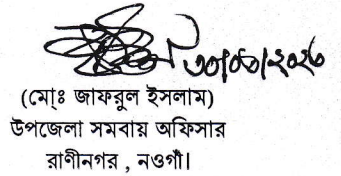 ৩০/০৩/২০২৩
(মোঃ জাফরুল ইসলাম)
উপজেলা সমবায় অফিসার
রাণীনগর , নওগাঁ।